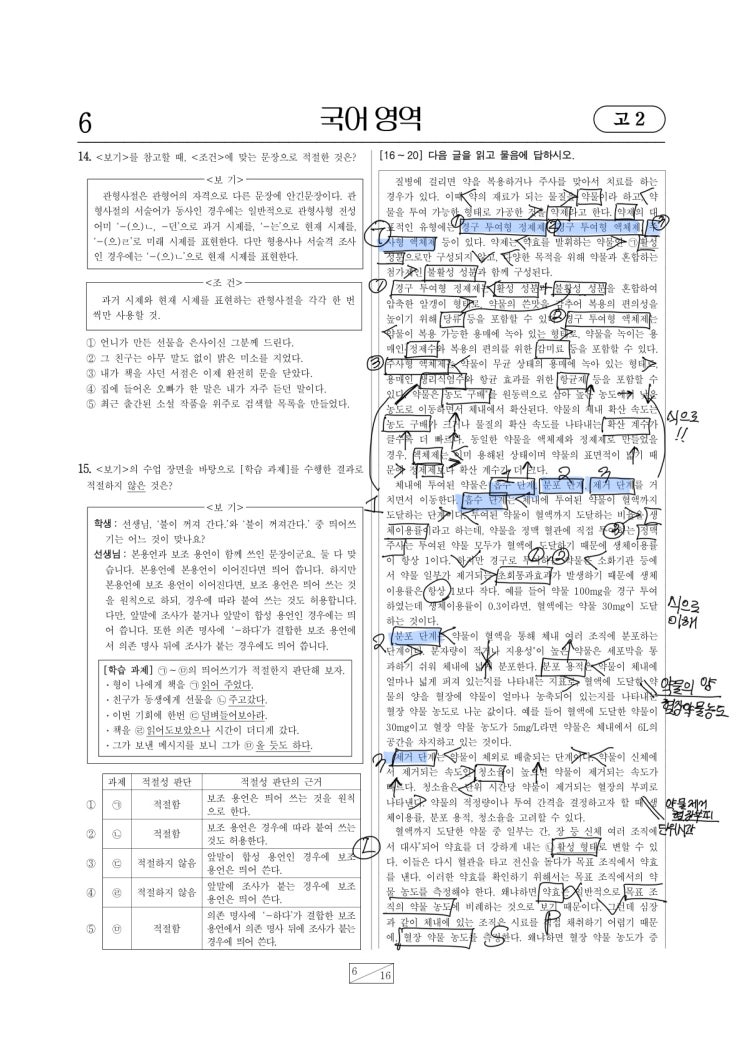 6
국어 영역
고 2
14. <보기>를 참고할 때, <조건>에 맞는 문장으로 적절한 것은?
<보 기>
관형사절은 관형어의 자격으로 다른 문장에 안긴문장이다. 관
형사절의 서술어가 동사인 경우에는 일반적으로 관형사형 전성
어미 '-(으)ㄴ, -던'으로 과거 시제를, '-는'으로 현재 시제를,
'-(으)ㄹ'로 미래 시제를 표현한다. 다만 형용사나 서술격 조사
인 경우에는 '-(으)ㄴ'으로 현재 시제를 표현한다.
<조 건>
과거 시제와 현재 시제를 표현하는 관형사절을 각각 한 번
씩만 사용할 것.
① 언니가 만든 선물을 은사이신 그분께 드린다.
② 그 친구는 아무 말도 없이 밝은 미소를 지었다.
③ 내가 책을 사던 서점은 이제 완전히 문을 닫았다.
④ 집에 들어온 오빠가 한 말은 내가 자주 듣던 말이다.
⑤ 최근 출간된 소설 작품을 위주로 검색할 목록을 만들었다.
15. <보기>의 수업 장면을 바탕으로 [학습 과제]를 수행한 결과로
적절하지 않은 것은?
<보 기>
학생: 선생님, '불이 꺼져 간다.'와 '불이 꺼져간다.' 중 띄어쓰
기는 어느 것이 맞나요?
선생님: 본용언과 보조 용언이 함께 쓰인 문장이군요. 둘 다 맞
습니다. 본용언에 본용언이 이어진다면 띄어 씁니다. 하지만
본용언에 보조 용언이 이어진다면, 보조 용언은 띄어 쓰는 것
을 원칙으로 하되, 경우에 따라 붙여 쓰는 것도 허용합니다.
다만, 앞말에 조사가 붙거나 앞말이 합성 용언인 경우에는 띄
어 씁니다. 또한 의존 명사에 '-하다'가 결합한 보조 용언에
서 의존 명사 뒤에 조사가 붙는 경우에도 띄어 씁니다.
[학습 과제] ㉠~㉤의 띄어쓰기가 적절한지 판단해 보자.
· 형이 나에게 책을 ㉠읽어 주었다.
· 친구가 동생에게 선물을 ㉡주고갔다.
· 이번 기회에 한번 ㉢덤벼들어보아라.
· 책을 ㉣읽어도보았으나 시간이 더디게 갔다.
· 그가 보낸 메시지를 보니 그가 ㉤올 듯도 하다.
과제 적절성 판단 적절성 판단의 근거
① ㉠ 적절함 보조 용언은 띄어 쓰는 것을 원칙
으로 한다.
② ㉡ 적절함 보조 용언은 경우에 따라 붙여 쓰는
것도 허용한다.
③ ㉢ 적절하지 않음 앞말이 합성 용언인 경우에 보조
용언은 띄어 쓴다.
④ ㉣ 적절하지 않음 앞말에 조사가 붙는 경우에 보조
용언은 띄어 쓴다.
⑤ ㉤ 적절함 의존 명사에 '-하다'가 결합한 보조
용언에서 의존 명사 뒤에 조사가 붙는
경우에 띄어 쓴다.
[16~20] 다음 글을 읽고 물음에 답하시오.
질병에 걸리면 약을 복용하거나 주사를 맞아서 치료를 하는
경우가 있다. 이때 약의 재료가 되는 물질을 약물이라 하고, 약
물을 투여 가능한 형태로 가공한 것을 약제라고 한다. 약제의 대
표적인 유형에는 경구 투여형 정제제, 경구 투여형 액체제, 주
사형 액체제 등이 있다. 약제는 약효를 발휘하는 약물인 ㉠활성
성분으로만 구성되지 않고, 다양한 목적을 위해 약물과 혼합하는
첨가제인 불활성 성분과 함께 구성된다.
경구 투여형 정제제는 활성 성분과 불활성 성분을 혼합하여
압축한 알갱이 형태로, 약물의 쓴맛을 감추어 복용의 편의성을
높이기 위해 당류 등을 포함할 수 있다. 경구 투여형 액체제는
약물이 복용 가능한 용매에 녹아 있는 형태로, 약물을 녹이는 용
매인 정제수와 복용의 편의를 위한 감미료 등을 포함할 수 있다.
주사형 액체제는 약물이 무균 상태의 용매에 녹아 있는 형태로,
용매인 생리식염수와 항균 효과를 위한 항균제 등을 포함할 수
있다. 약물은 농도 구배를 원동력으로 삼아 높은 농도에서 낮은
농도로 이동하면서 체내에서 확산된다. 약물의 체내 확산 속도는
농도 구배가 크거나 물질의 확산 속도를 나타내는 확산 계수가
클수록 더 빠르다. 동일한 약물을 액체제와 정제제로 만들었을
경우, 액체제는 이미 용해된 상태이며 약물의 표면적이 넓기 때
문에 정제제보다 확산 계수가 더 크다.
체내에 투여된 약물은 흡수 단계, 분포 단계, 제거 단계를 거
치면서 이동한다. 흡수 단계는 체내에 투여된 약물이 혈액까지
도달하는 단계이다. 투여된 약물이 혈액까지 도달하는 비율을 생
체이용률이라고 하는데, 약물을 정맥 혈관에 직접 투여하는 정맥
주사는 투여된 약물 모두가 혈액에 도달하기 때문에 생체이용률
이 항상 1이다. 하지만 경구로 투여하는 약물은 소화기관 등에
서 약물 일부가 제거되는 초회통과효과가 발생하기 때문에 생체
이용률은 항상 1보다 작다. 예를 들어 약물 100mg을 경구 투여
하였는데 생체이용률이 0.3이라면, 혈액에는 약물 30mg이 도달
하는 것이다.
분포 단계는 약물이 혈액을 통해 체내 여러 조직에 분포하는
단계이다. 분자량이 적거나 지용성이 높은 약물은 세포막을 통
과하기 쉬워 체내에 넓게 분포한다. 분포 용적은 약물이 체내에
얼마나 넓게 퍼져 있는지를 나타내는 지표로, 혈액에 도달한 약
물의 양을 혈장에 약물이 얼마나 농축되어 있는지를 나타내는
혈장 약물 농도로 나눈 값이다. 예를 들어 혈액에 도달한 약물이
30mg이고 혈장 약물 농도가 5mg/L라면 약물은 체내에서 6L의
공간을 차지하고 있는 것이다.
제거 단계는 약물이 체외로 배출되는 단계이다. 약물이 신체에
서 제거되는 속도인 청소율이 높으면 약물이 제거되는 속도가
빠르다. 청소율은 단위 시간당 약물이 제거되는 혈장의 부피로
나타낸다. 약물의 적정량이나 투여 간격을 결정하고자 할 때 생
체이용률, 분포 용적, 청소율을 고려할 수 있다.
혈액까지 도달한 약물 중 일부는 간, 장 등 신체 여러 조직에
서 대사되어 약효를 더 강하게 내는 ㉡활성 형태로 변할 수 있
다. 이들은 다시 혈관을 타고 전신을 돌다가 목표 조직에서 약효
를 낸다. 이러한 약효를 확인하기 위해서는 목표 조직에서의 약
물 농도를 측정해야 한다. 왜냐하면 약효는 일반적으로 목표 조
직의 약물 농도에 비례하는 것으로 보기 때문이다. 그런데 심장
과 같이 체내에 있는 조직은 시료를 직접 채취하기 어렵기 때문
에, 혈장 약물 농도를 측정한다. 왜냐하면 혈장 약물 농도가 증
식으로
!!
식으로
이해
약물의 양
혈장약물농도
약물제거
혈장부피
단위시간
6
16